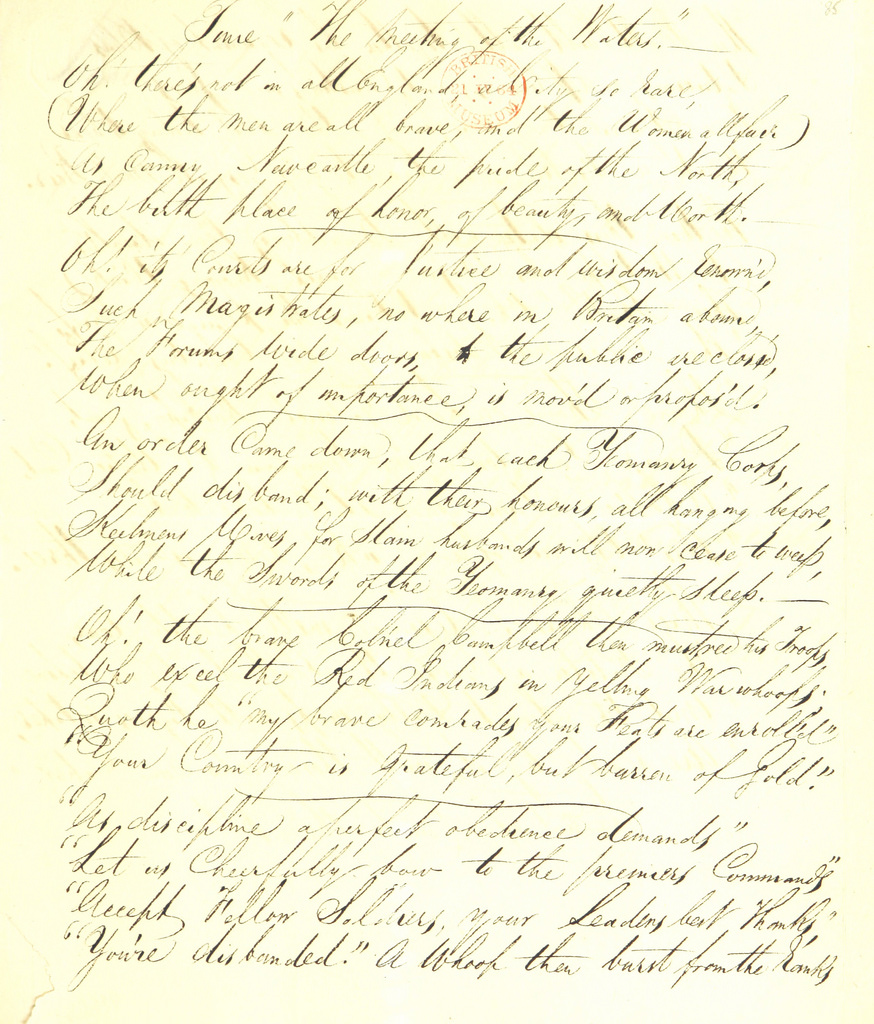 85
Tune "The meeting of the Waters."—
Oh! there's not in all England a City so rare,
(Where the men are all brave, and the Women all fair)
As Canny Newcastle, the pride of the North,
The birth place of honor, of beauty, and Worth.—
BRITISH MUSEUM
Oh! its Courts are for Justice and wisdom renown'd,
Such Magistrates, no where in Britain abound,
The Forums wide doors, to the public are closed,
When ought of importance, is mov'd or propos'd.
An order Came down, that each Yeomanry Corps,
Should disband; with their honours, all hanging before,
Keelmens Wives, for Slain husbands will now cease to weep,
While the Swords of the Yeomanry quietly sleep.—
Oh! the brave Colonel Campbell then mustred his Troops,
Who excel the Red Indians in yelling War whoops.
Quoth he "my brave comrades your Feats are enrolled"
"Your Country is grateful, but barren of Gold."
"As discipline a perfect obedience demands"
"Let us Cheerfully bow to the premiers Commands"
"Accept Fellow Soldiers, your Leaders best Thanks,"
"You're disbanded." A Whoop then burst from the ranks